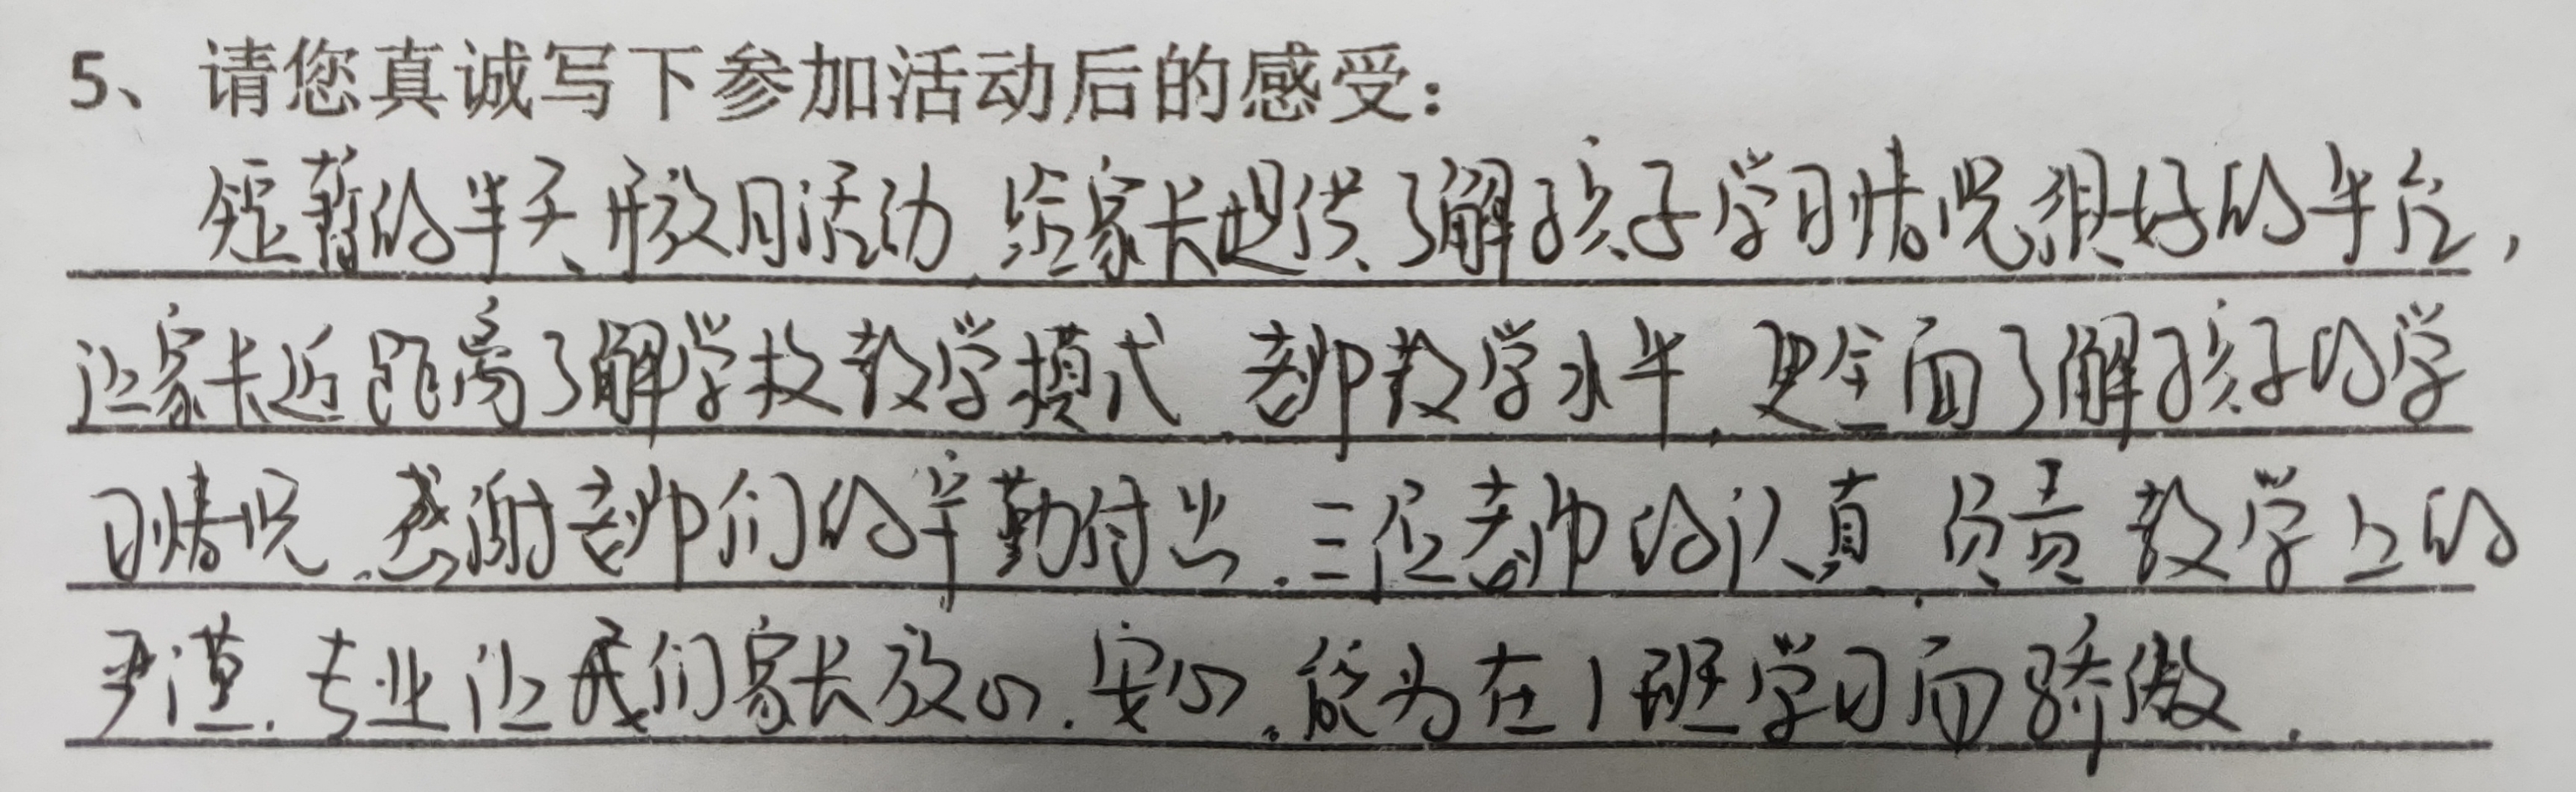 5、请您真诚写下参加活动后的感受：
短暂的半天开放日活动.给家长提供了解孩子学习情况很好的平台，
让家长近距离了解学校教学模式.老师教学水平.更全面了解孩子的学
习情况.感谢老师们的辛勤付出.三位老师的认真.负责教学上的
严谨.专业让我们家长放心.安心.能为在1班学习而骄傲.